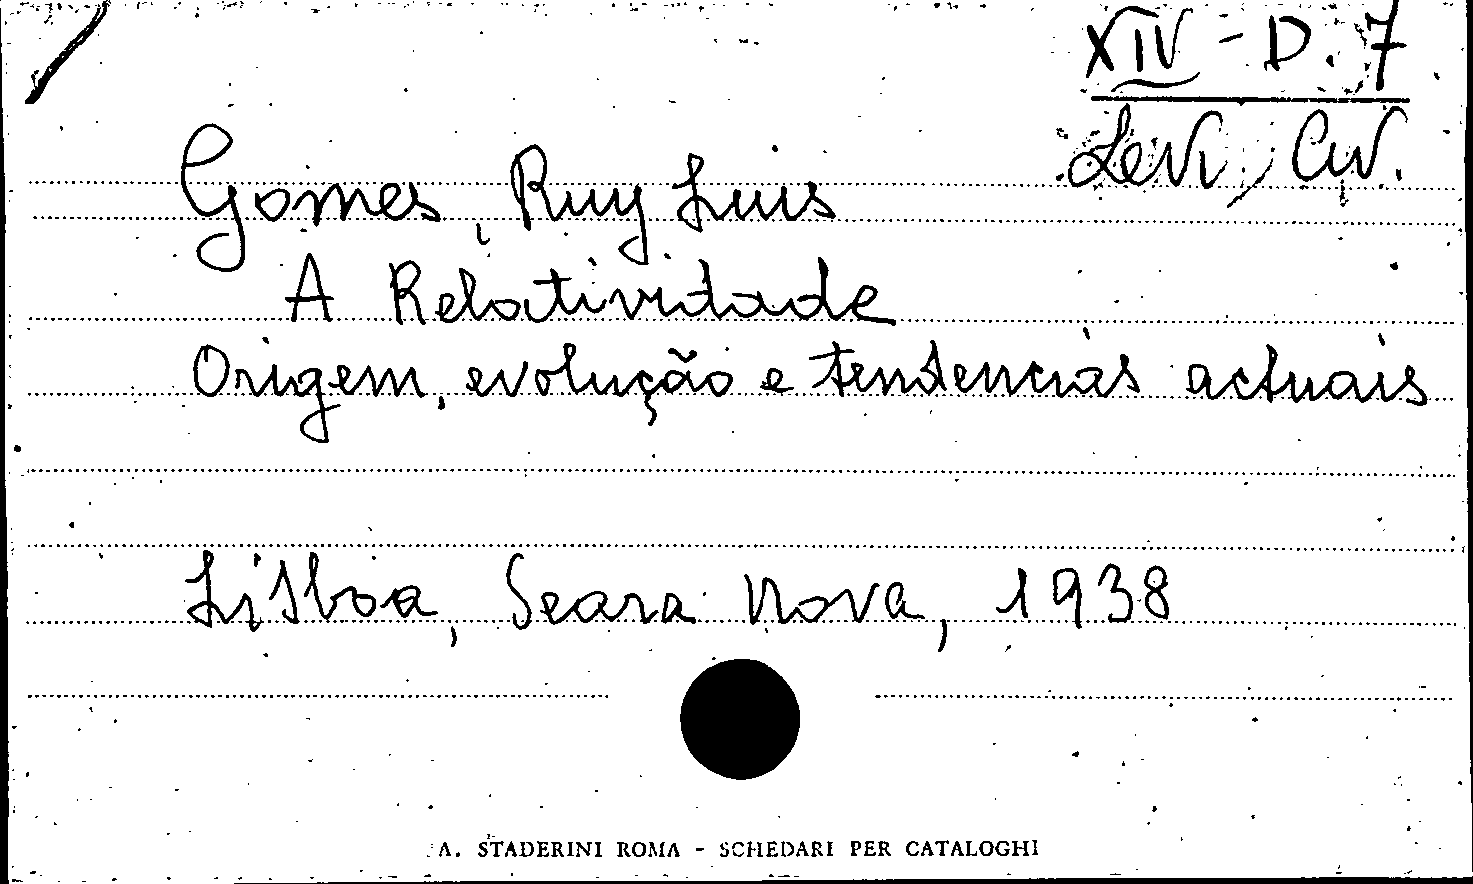 XIV - D. 7
Levi, Civ.
Gomes, Ruy Luis
A Relatividade
Origem, evolução e tendencias actuais
Lisboa, Seara Nova, 1938
A. STADERINI ROMA - SCHEDARI PER CATALOGHI